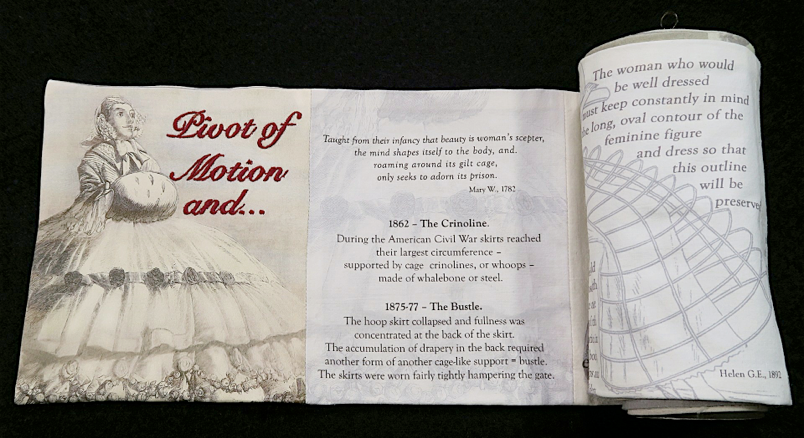 Pivot of
Motion
and...
Taught from their infancy that beauty is woman's scepter,
the mind shapes itself to the body, and.
roaming around its gilt cage,
only seeks to adorn its prison.
Mary W., 1782
1862 – The Crinoline.
During the American Civil War skirts reached
their largest circumference –
supported by cage crinolines, or whoops –
made of whalebone or steel.
1875-77 – The Bustle.
The hoop skirt collapsed and fullness was
concentrated at the back of the skirt.
The accumulation of drapery in the back required
another form of another cage-like support = bustle.
The skirts were worn fairly tightly hampering the gate.
The woman who would
be well dressed
must keep constantly in mind
the long, oval contour of the
feminine figure
and dress so that
this outline
will be
preserve
Helen G.E., 1892